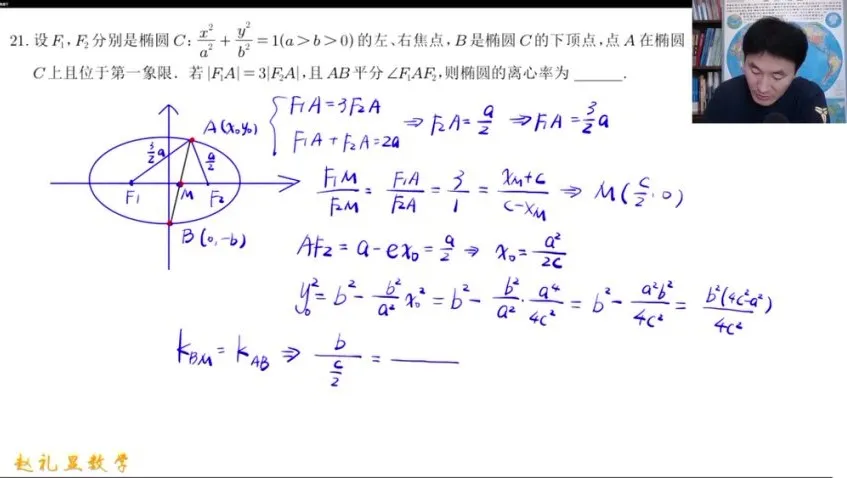 21. 设 F₁, F₂ 分别是椭圆 C: x²/a² + y²/b² = 1(a>b>0) 的左、右焦点, B 是椭圆 C 的下顶点, 点 A 在椭圆
C 上且位于第一象限. 若 |F₁A| = 3|F₂A|, 且 AB 平分 ∠F₁AF₂, 则椭圆的离心率为 ______.
F₁A = 3F₂A
F₁A + F₂A = 2a
⇒ F₂A = a/2 ⇒ F₁A = 3/2 a
A (x₀, y₀)
3/2 a
a/2
F₁
M
F₂
B (0, -b)
F₁M/F₂M = F₁A/F₂A = 3/1 = (x_M + c)/(c - x_M) ⇒ M (c/2, 0)
AF₂ = a - ex₀ = a/2 ⇒ x₀ = a²/2c
y₀² = b² - b²/a² x₀² = b² - b²/a² · a⁴/4c² = b² - a²b²/4c² = b²(4c²-a²)/4c²
k_BM = k_AB ⇒ b/(c/2) = ______
赵礼显数学